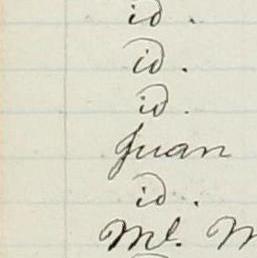 id.
id.
id.
Juan
id.
Ml. M